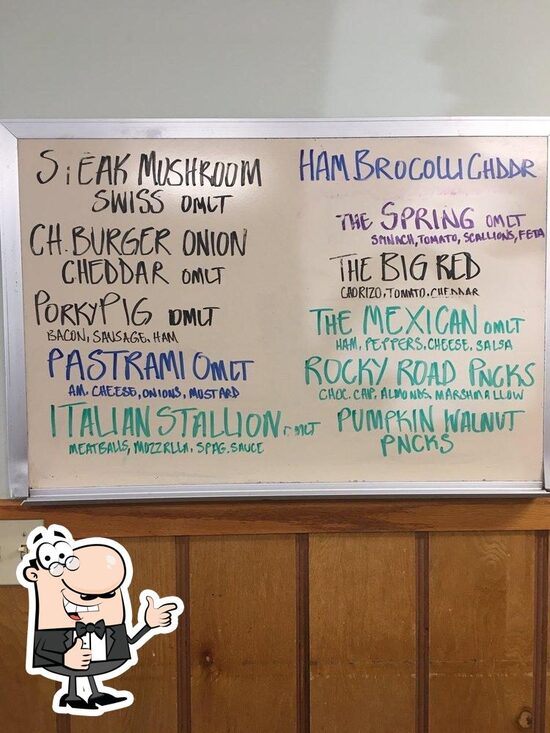 STEAK MUSHROOM
SWISS OMLT
CH. BURGER ONION
CHEDDAR OMLT
PORKY PIG OMLT
BACON, SAUSAGE, HAM
PASTRAMI OMLT
AM. CHEESE, ONIONS, MUSTARD
ITALIAN STALLION OMLT
MEATBALLS, MOZZRLLA, SPAG. SAUCE
HAM BROCOLLI CHDDR
THE SPRING OMLT
SPINACH, TOMATO, SCALLIONS, FETA
THE BIG RED
CHORIZO, TOMATO, CHEDDAR
THE MEXICAN OMLT
HAM, PEPPERS, CHEESE, SALSA
ROCKY ROAD PNCKS
CHOC. CHIP, ALMONDS, MARSHMALLOW
PUMPKIN WALNUT
PNCKS